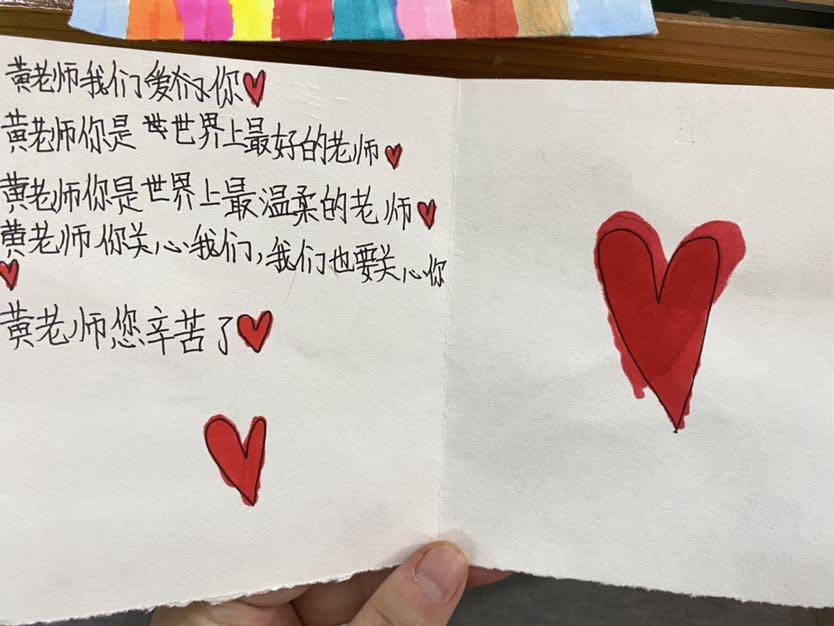 黄老师我们爱们你
黄老师你是世界上最好的老师
黄老师你是世界上最温柔的老师
黄老师你关心我们,我们也要关心你
黄老师您辛苦了